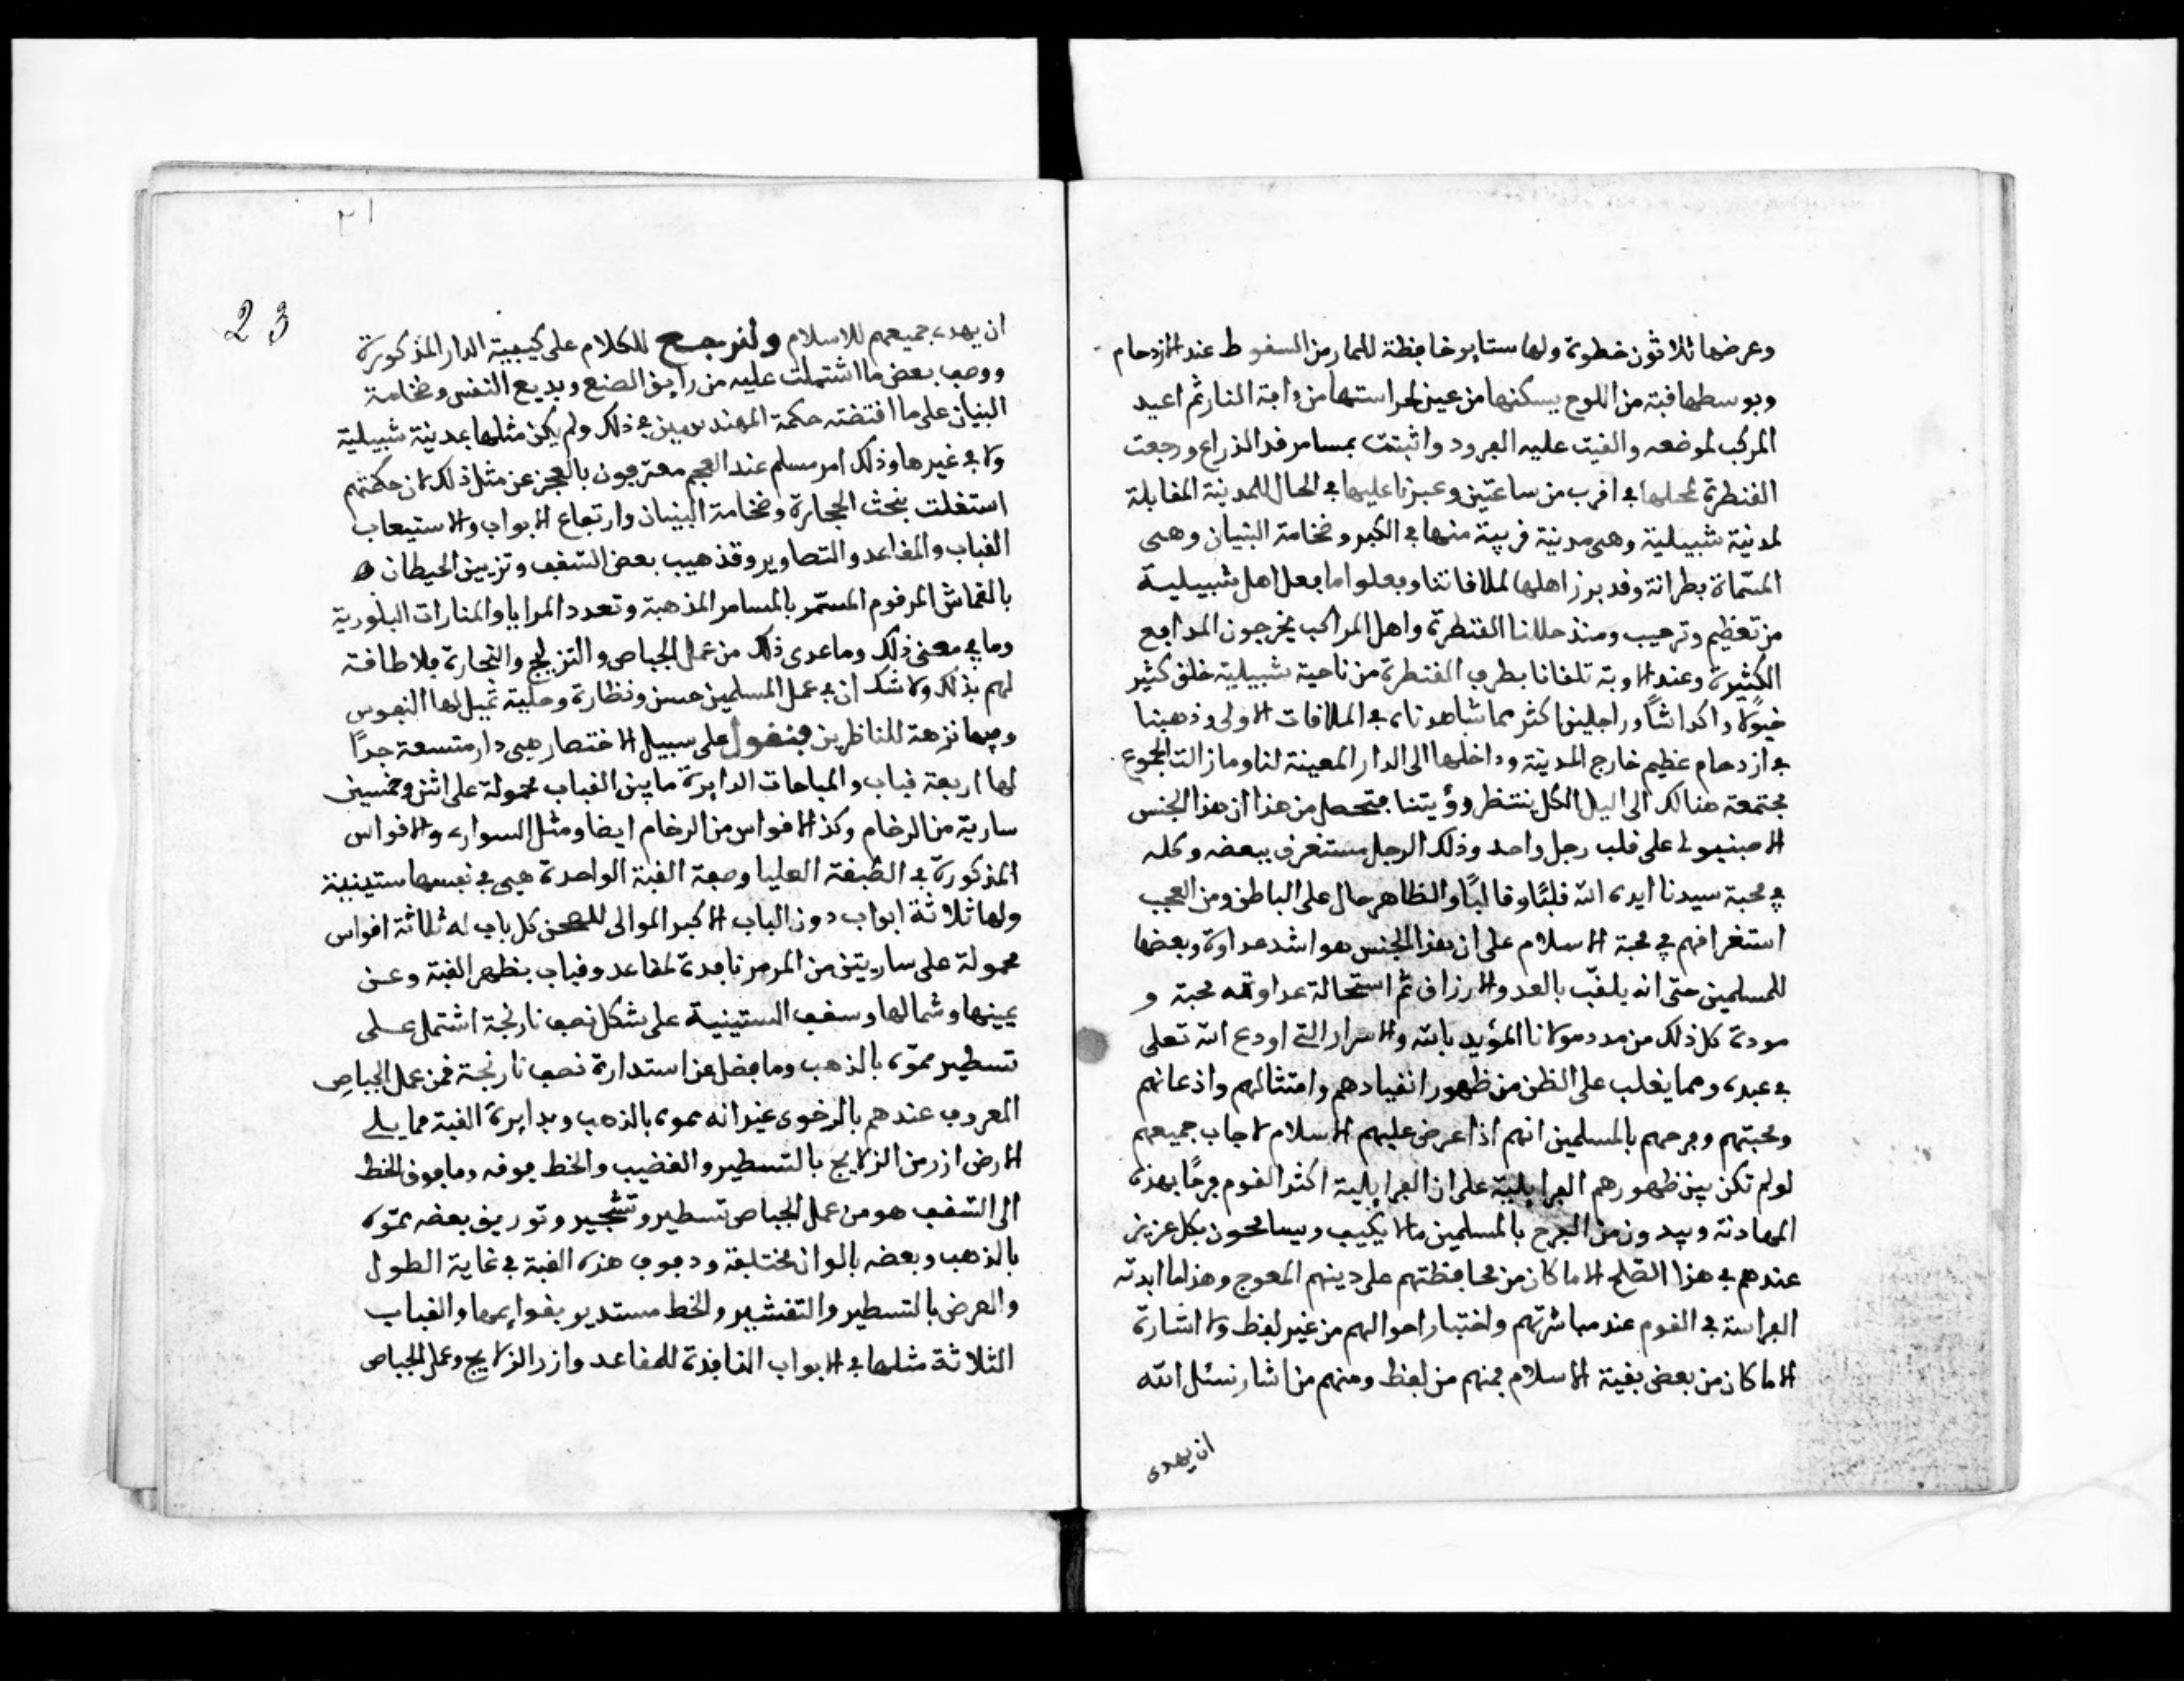 وعرضها ثلاثون خطوة ولها ستاير خافظة للمار من السقوط عند الازدحام
وبوسطها قبة من اللوح يسكنها من عين لحراستها من ءافة النار ثم اعيد
المركب لموضعه والقيت عليه الفرود واثبتت بمسامر قد الذراع ورجعت
القنطرة لمحلها في اقرب من ساعتين وعبرنا عليها في الحال للمدينة المقابلة
لمدينة شبيلية وهى مدينة قريبة منها في الكبر وضخامة البنيان وهى
المسمّاة بطرانة وقد برز اهلها لملاقاتنا وفعلوا ما فعل اهل شبيلية
من تعظيم وترحيب ومنذ حللنا القنطرة واهل المراكب يخرجون المدافع
الكثيرة وعند الاوبة تلقانا بطرف القنطرة من ناحية شبيلية خلق كثير
خيولا واكداشاً وراجلين اكثر مما شاهدناه في الملاقات الاولى وذهبنا
في ازدحام عظيم خارج المدينة وداخلها الى الدار المعينة لنا وما زالت الجموع
مجتمعة هنالك الى اليل الكل ينتظر رؤيتنا فتحصل من هذا ان هذا الجنس
الاصبنيولي على قلب رجل واحد وذلك الرجل مستغرق ببعضه وكله
في محبة سيدنا ايده الله قلبًا وقالبًا والظاهر حال على الباطن ومن العجب
استغراقهم في محبة الاسلام على ان هذا الجنس هو اشد عداوة وبعضها
للمسلمين حتى انه يلقّب بالعدو الازراق ثم استحالة عداوته محبة و
مودة كل ذلك من مدد مولانا المؤيد بالله والاسرار التي اودع الله تعلى
في عبده ومما يغلب على الظن من ظهور انقيادهم وامتثالهم واذعانهم
ومحبتهم وفرحهم بالمسلمين انهم اذا عرض عليهم الاسلام لاجاب جميعهم
لو لم تكن بين ظهورهم الفرايلية على ان الفرايلية اكثر القوم فرحًا بهذه
المهادنة ويبدون من الفرح بالمسلمين ما لا يكيف ويسامحون بكل عزيز
عندهم في هذا الصّلح الا ما كان من محافظتهم على دينهم المعوج وهذا ما ابدته
الفراسة في القوم عند مباشرتهم واختبار احوالهم من غير لفظ ولا اشارة
الا ما كان من بعض بقية الاسلام فمنهم من لفظ ومنهم من اشار نسئل الله
ان يهدى
٢١
23
ان يهدى جميعهم للاسلام ولنرجع للكلام على كيفية الدار المذكورة
ووصف بعض ما اشتملت عليه من رايق الصنع وبديع النفس وضخامة
البنيان على ما اقتضته حكمة المهندسين في ذلك ولم يكن مثلها بمدينة شبيلية
ولا في غيرها وذلك امر مسلم عند العجم معترفون بالعجز عن مثل ذلك لان حكمتهم
استغلت بنحث الحجارة وضخامة البنيان وارتفاع الابواب والاستيعاب
القباب والمقاعد والتصاوير وقذهيب بعض السّقف وتزيين الحيطان
بالقماش المرقوم المسمّر بالمسامر المذهبة وتعدد المرايا والمنارات البلورية
وما في معنى ذلك وما عدى ذلك من عمل الجباص والتزليج والنجارة فلا طاقة
لهم بذلك ولا شك ان في عمل المسلمين حسن ونظارة وحلية تميل لها النفوس
وفيها نزهة للناظرين فنقول على سبيل الاختصار هى دار متسعة جدًا
لها اربعة قباب والمباحات الدايرة ما بين القباب محمولة على اثنى وخمسين
سارية من الرخام وكذا الاقواس من الرخام ايضا ومثل السوارى والاقواس
المذكورة في الطبقة العليا وصفة القبة الواحدة هى في نفسها ستينينة
ولها ثلاثة ابواب دون الباب الاكبر الموالى للصحن كل باب له ثلاثة اقواس
محمولة على ساريتين من المرمر نافدة لمقاعد وقباب بظهر القبة وعن
يمينها وشمالها وسقف الستينية على شكل نصف نارنجة اشتمل على
تسطير مموّه بالذهب وما فضل عن استدارة نصف نارنجة فمن عمل الجباص
المعروف عندهم بالرخوى غير انه مموه بالذهب وبدايرة القبة مما يلى
الارض ازر من الزلايج بالتسطير والقضيب والخط فوقه وما فوق الخط
الى السّقف هو من عمل الجباص تسطير وتشجير وتوريق بعضه مموّه
بالذهب وبعضه بالوان مختلفة ودفوف هذه القبة في غاية الطول
والعرض بالتسطير والتقشير والخط مستدير بقوايمها والقباب
الثلاثة مثلها في الابواب النافذة للمقاعد وازر الزلايج وعمل الجباص